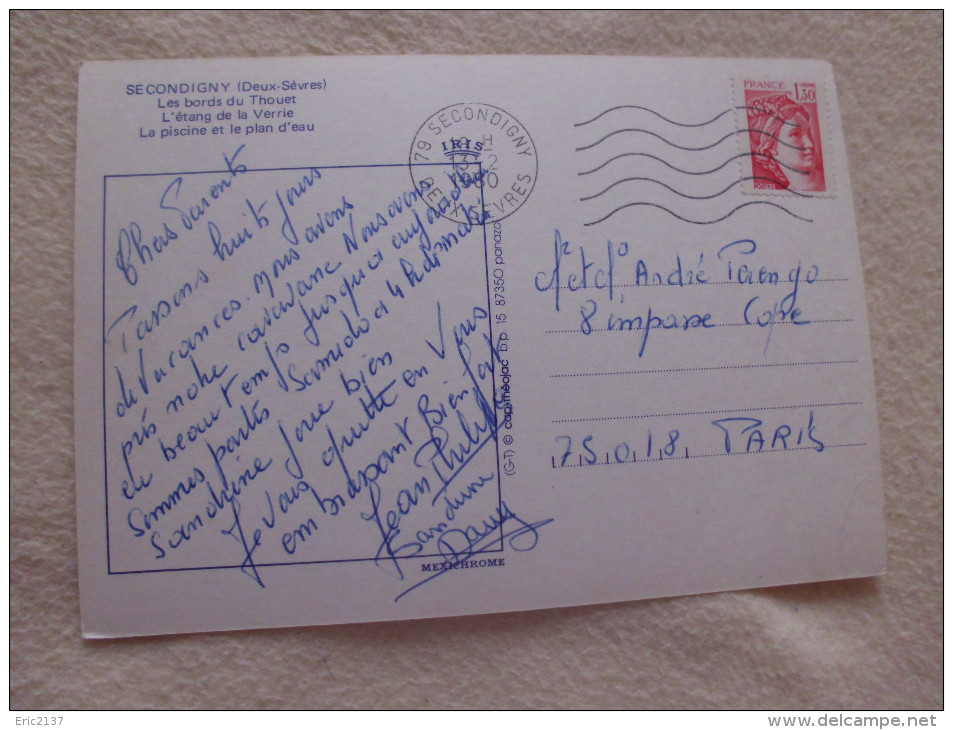 SECONDIGNY (Deux-Sèvres)
Les bords du Thouet
L'étang de la Verrie
La piscine et le plan d'eau
79 SECONDIGNY
13-2
1980
DEUX-SEVRES
FRANCE
1,30
IRIS
Chers Parents
Passons huits jours
de Vacances. Nous avons
pris notre caravane Nous avons
du beau temps jusqu'a aujourd'hui
sommes partis Samedi a 4h
Sandrine joue bien
Je vous quitte en Vous
embrassant Bien fort
Jean Philippe
Sandrine
Dany
MEXICHROME
(G-T) © cap-théojac b.p. 15 87350 panazol
Mr et Me André Parengo
8 impasse Cope
75018 PARIS
Eric2137
delcampe.net